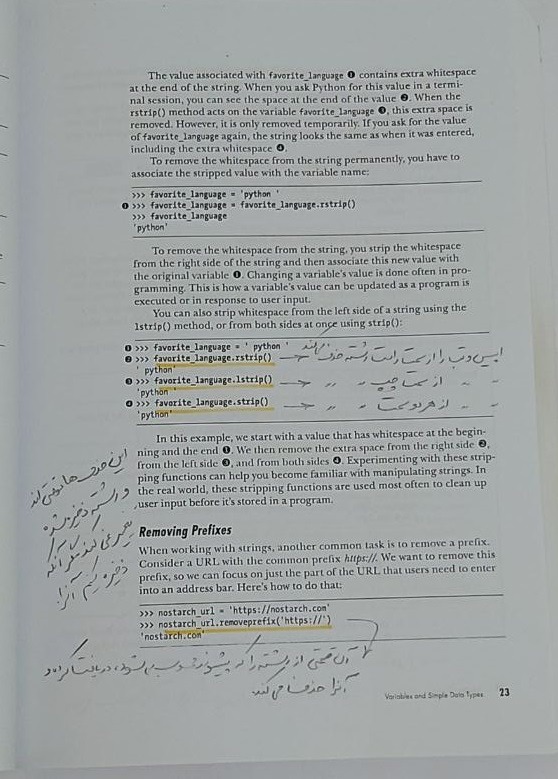 The value associated with favorite_language ❶ contains extra whitespace
at the end of the string. When you ask Python for this value in a termi-
nal session, you can see the space at the end of the value ❷. When the
rstrip() method acts on the variable favorite_language ❸, this extra space is
removed. However, it is only removed temporarily. If you ask for the value
of favorite_language again, the string looks the same as when it was entered,
including the extra whitespace ❹.
To remove the whitespace from the string permanently, you have to
associate the stripped value with the variable name:
>>> favorite_language = 'python '
❶ >>> favorite_language = favorite_language.rstrip()
>>> favorite_language
'python'
To remove the whitespace from the string, you strip the whitespace
from the right side of the string and then associate this new value with
the original variable ❶. Changing a variable's value is done often in pro-
gramming. This is how a variable's value can be updated as a program is
executed or in response to user input.
You can also strip whitespace from the left side of a string using the
lstrip() method, or from both sides at once using strip():
❶ >>> favorite_language = ' python '
❷ >>> favorite_language.rstrip() را از سمت راست رشته حذف
' python'
❸ >>> favorite_language.lstrip() از سمت چپ
'python '
❹ >>> favorite_language.strip() از هر دو سمت
'python'
In this example, we start with a value that has whitespace at the begin-
ning and the end ❶. We then remove the extra space from the right side ❷,
from the left side ❸, and from both sides ❹. Experimenting with these strip-
ping functions can help you become familiar with manipulating strings. In
the real world, these stripping functions are used most often to clean up
user input before it's stored in a program.
این حذف ها
ذخیره کنیم آنرا
Removing Prefixes
When working with strings, another common task is to remove a prefix.
Consider a URL with the common prefix https://. We want to remove this
prefix, so we can focus on just the part of the URL that users need to enter
into an address bar. Here's how to do that:
>>> nostarch_url = 'https://nostarch.com'
>>> nostarch_url.removeprefix('https://')
'nostarch.com'
آن قسمتی از رشته را که پیشوند
آنرا حذف می کند
Variables and Simple Data Types 23